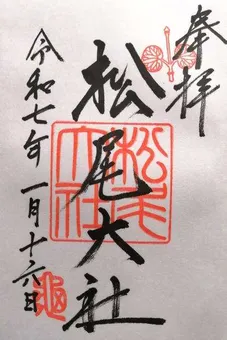 奉拝
松尾大社
松尾大社
令和七年一月十六日